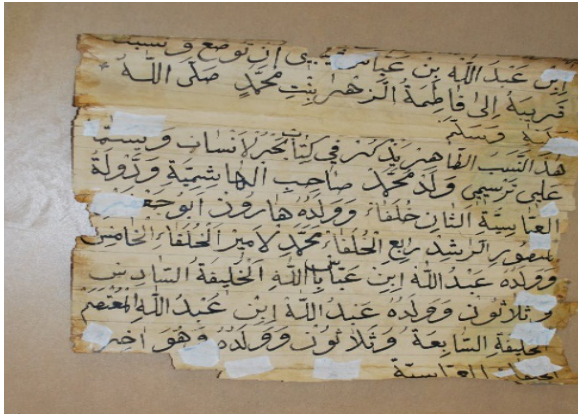 إبن عبد الله بن عباس ان توضع ونسبت
قريبة إلى فاطمة الزهراء بنت محمد صلى الله
عليه وسلم
هذا النسب الطاهر يذكر في كتاب بحر الانساب ويسمى
على ترسمي ولد محمد صاحب الهاشمية ودولة
العباسية الثان خلفاء وولده هارون أبو جعفر
المنصور الراشد رابع الخلفاء محمد لامير الخلفاء الخامس
وولده عبد الله إبن عباس بالله الخليفة السادس
وثلاثون وولده عبد الله إبن عبد الله المعتصم
الخليفة السابعة وثلاثون وولده وهو اخر
العباسية